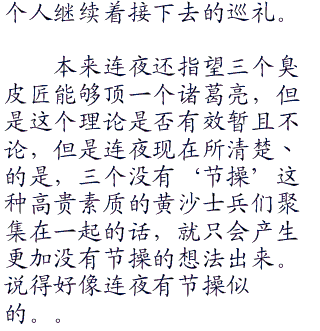 个人继续着接下去的巡礼。
本来连夜还指望三个臭
皮匠能够顶一个诸葛亮，但
是这个理论是否有效暂且不
论，但是连夜现在所清楚、
的是，三个没有‘节操’这
种高贵素质的黄沙士兵们聚
集在一起的话，就只会产生
更加没有节操的想法出来。
说得好像连夜有节操似
的。。